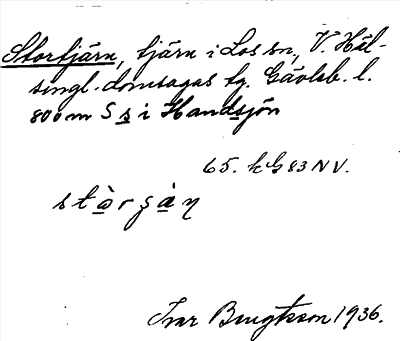 Stortjärn, tjärn i Los sn, V. Häl-
singl. domsagas tg. Gävleb. l.
800 m S s i Handsjön
65. kG 83 NV.
Ivar Bengtsson 1936.